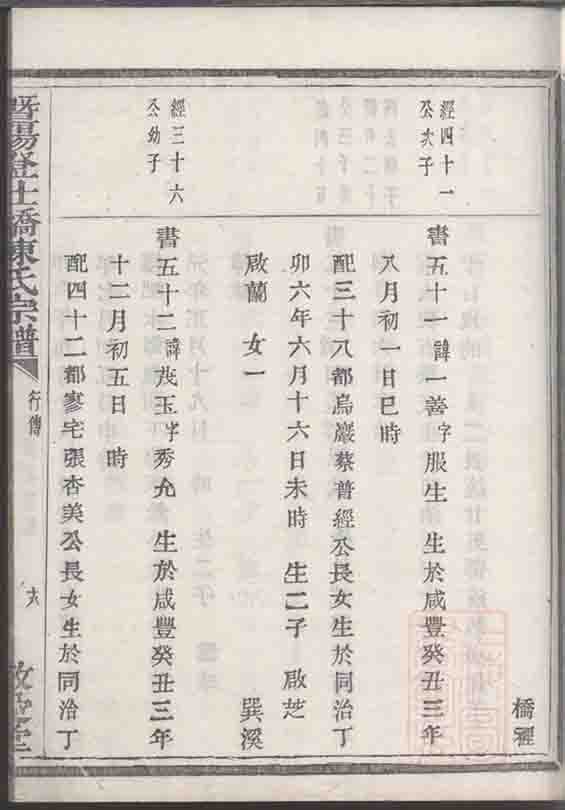 橋裡
經四十一
公次子
書五十一諱一善字服生 生於咸豐癸丑三年
八月初一日巳時
配三十八都烏巖蔡普經公長女生於同治丁
卯六年六月十六日未時 生二子 啟芝
啟蘭 女一 巽溪
經三十六
公幼子
書五十二諱茂玉字秀允 生於咸豐癸丑三年
十二月初五日 時
配四十二都寥宅張杏美公長女生於同治丁
暨陽登仕橋陳氏宗譜
行傳